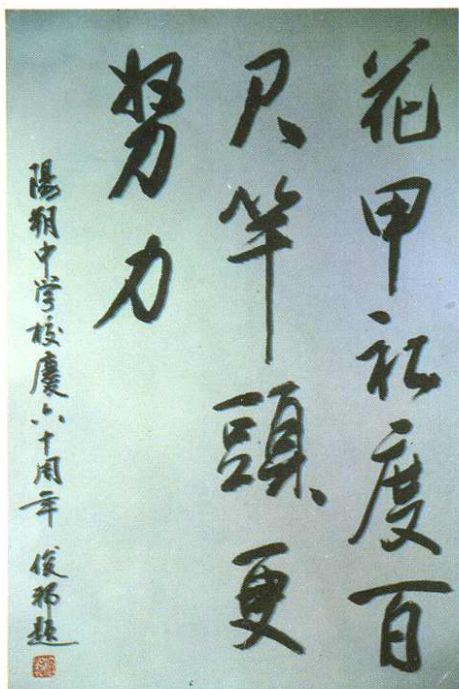 花甲初度百
尺竿頭更
努力
陽朔中学校慶六十周年 俊 題